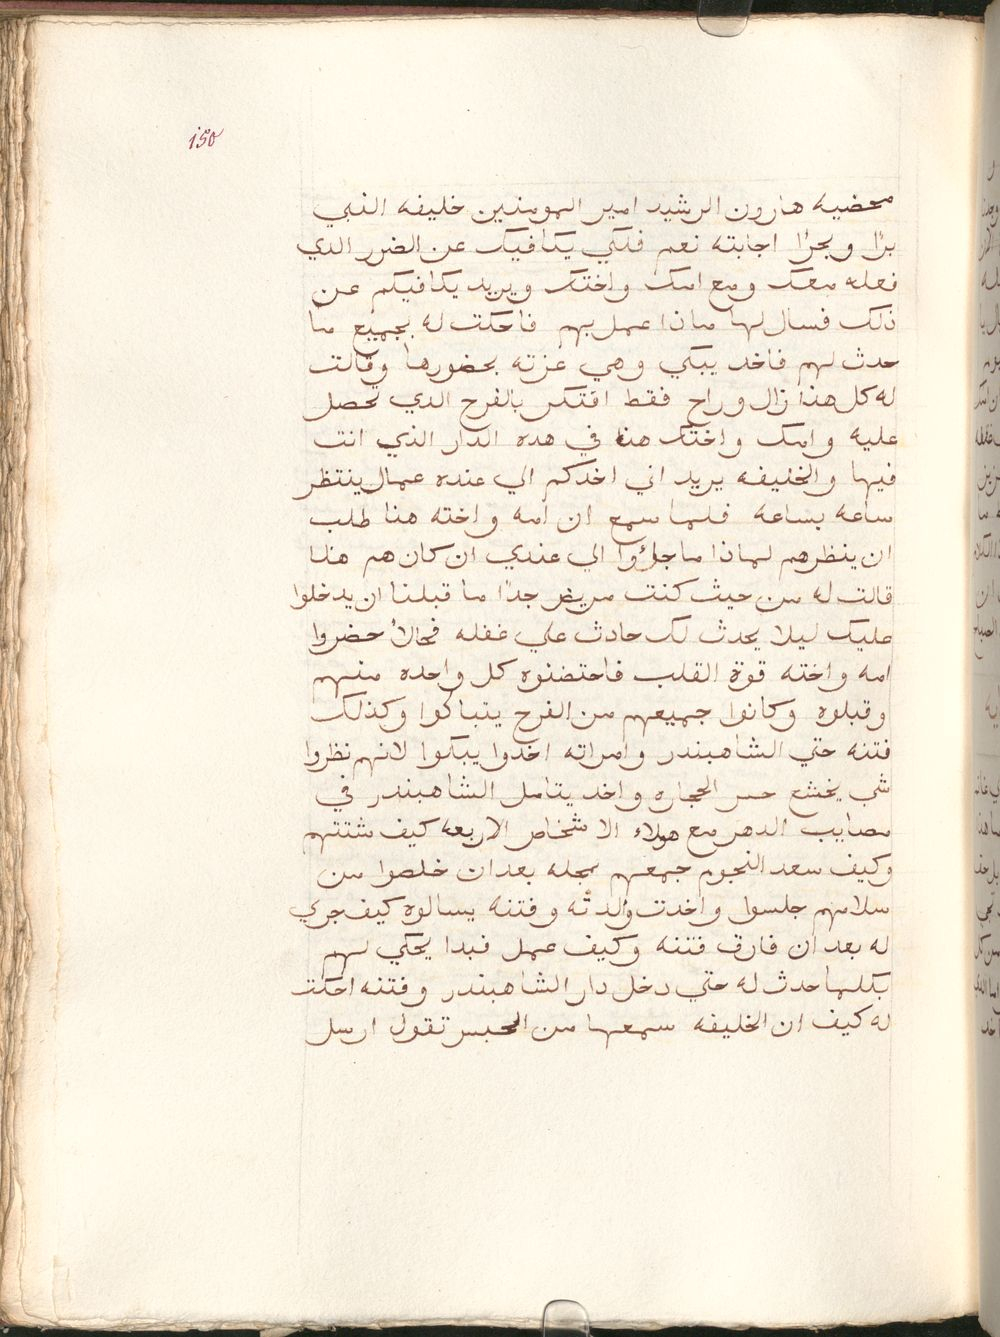 150
محضيه هارون الرشيد امير المومنين خليفه النبي
برًا وبحرًا اجابته نعم فلكي يكافيك عن الضرر الدي
فعله معك ومع امك واختك ويريد يكافيكم عن
ذلك فسال لها ماذا عمل بهم فاحكت له بجميع ما
حدث لهم فاخد يبكي وهي عزته بحضورها وقالت
له كل هذا زال وراح فقط افتكر بالفرح الدي تحصل
عليه وامك واختك هنا في هده الدار الذي انت
فيها والخليفه يريد اني اخدكم الي عنده عمال ينتظر
ساعه بساعه فلما سمع ان امه واخته هنا طلب
ان ينظرهم لماذا ما جاؤا الي عندي ان كان هم هنا
قالت له من حيث كنت مريض جدًا ما قبلنا ان يدخلوا
عليك ليلا يحدث لك حادث علي غفله فحالاً حضروا
امه واخته قوة القلب فاحتضنوه كل واحده منهم
وقبلوه وكانوا جميعهم من الفرح يتباكوا وكذلك
فتنه حتي الشاهبندر وامراته اخدوا يبكوا لانهم نظروا
شي يخشع حس الحجاره واخد يتامل الشاهبندر في
مصايب الدهر مع هولاء الاشخاص الاربعه كيف شتتهم
وكيف سعد النجوم جمعهم بجله بعد ان خلصوا من
سلامهم جلسوا واخدت ولدته وفتنه يسالوه كيف جري
له بعد ان فارق فتنه وكيف عمل فبدا يحكي لهم
بكلما حدث له حتي دخل دار الشاهبندر وفتنه احكت
له كيف ان الخليفه سمعها من الحبس تقول ارسل